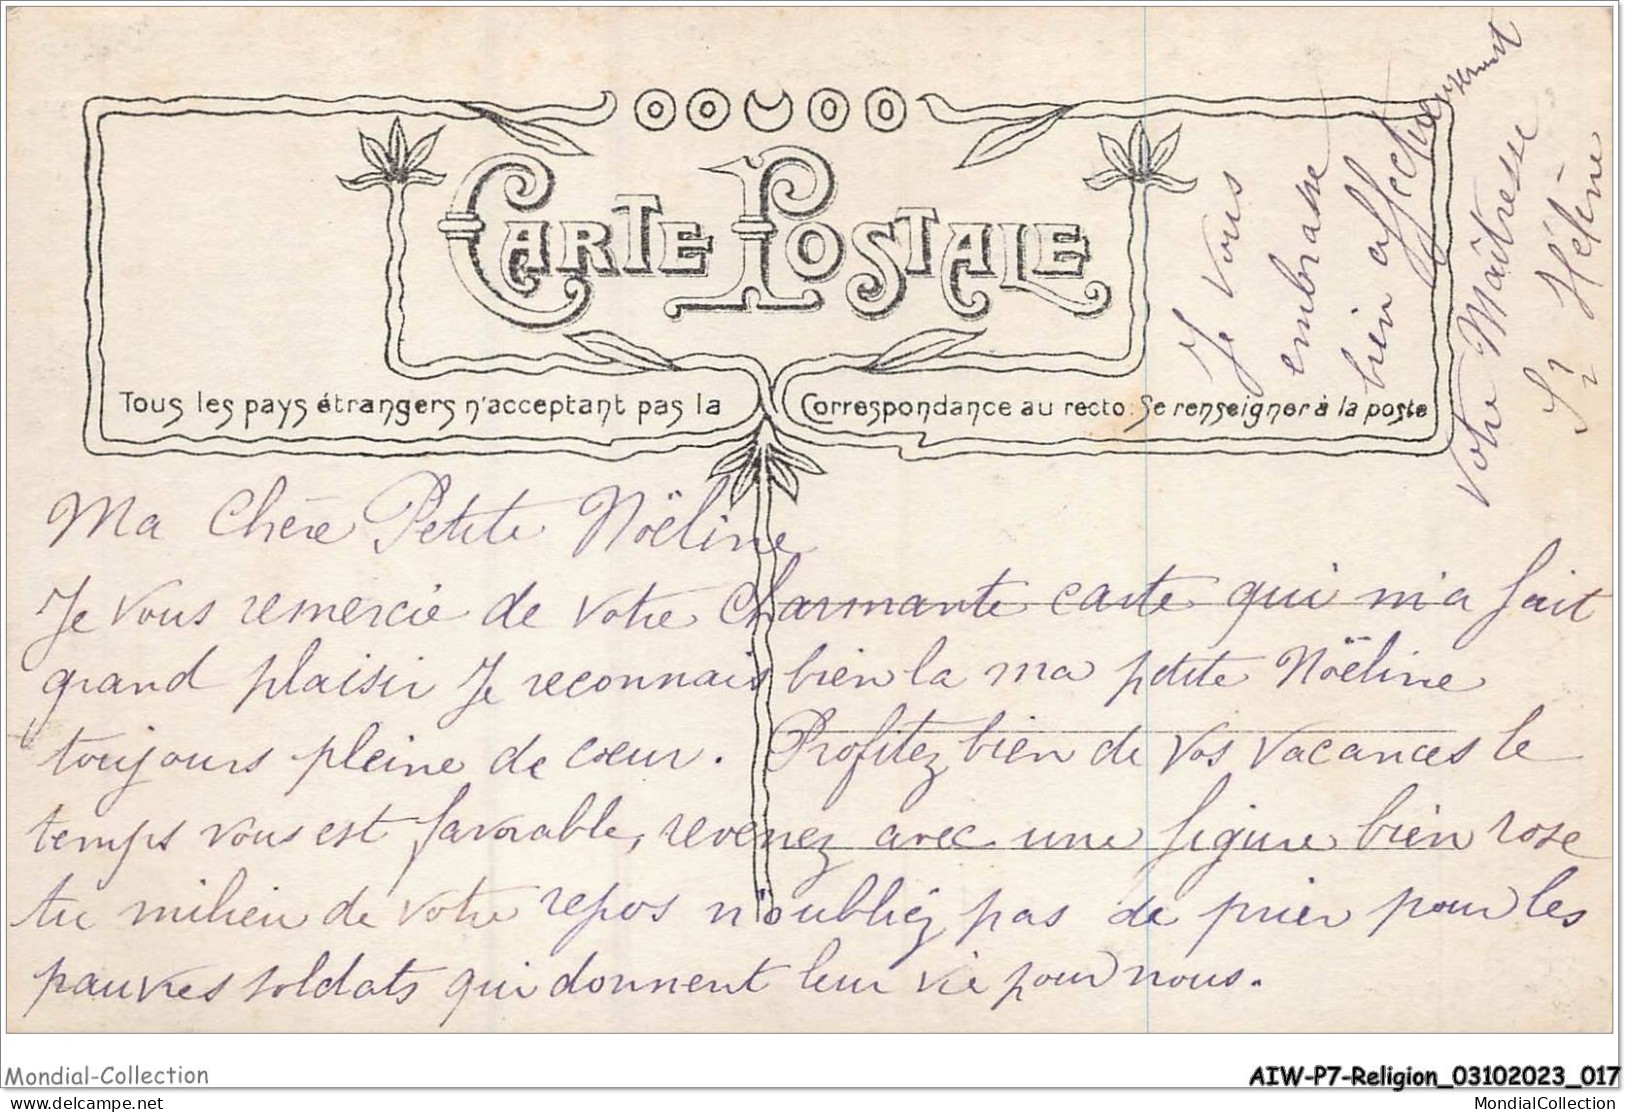 CARTE POSTALE
Tous les pays étrangers n'acceptant pas la Correspondance au recto: Se renseigner à la poste
Ma Chère Petite Noëline
Je vous remercie de votre Charmante carte qui m'a fait
grand plaisir Je reconnais bien la ma petite Noëline
toujours pleine de cœur. Profitez bien de vos vacances le
temps vous est favorable, revenez avec une figure bien rose
au milieu de votre repos n'oubliez pas de prier pour les
pauvres soldats qui donnent leur vie pour nous.
Je vous
embrasse
bien affectueusement
Votre Maîtresse
Sr Hélène
Mondial-Collection
AIW-P7-Religion_03102023_017
delcampe.net
MondialCollection